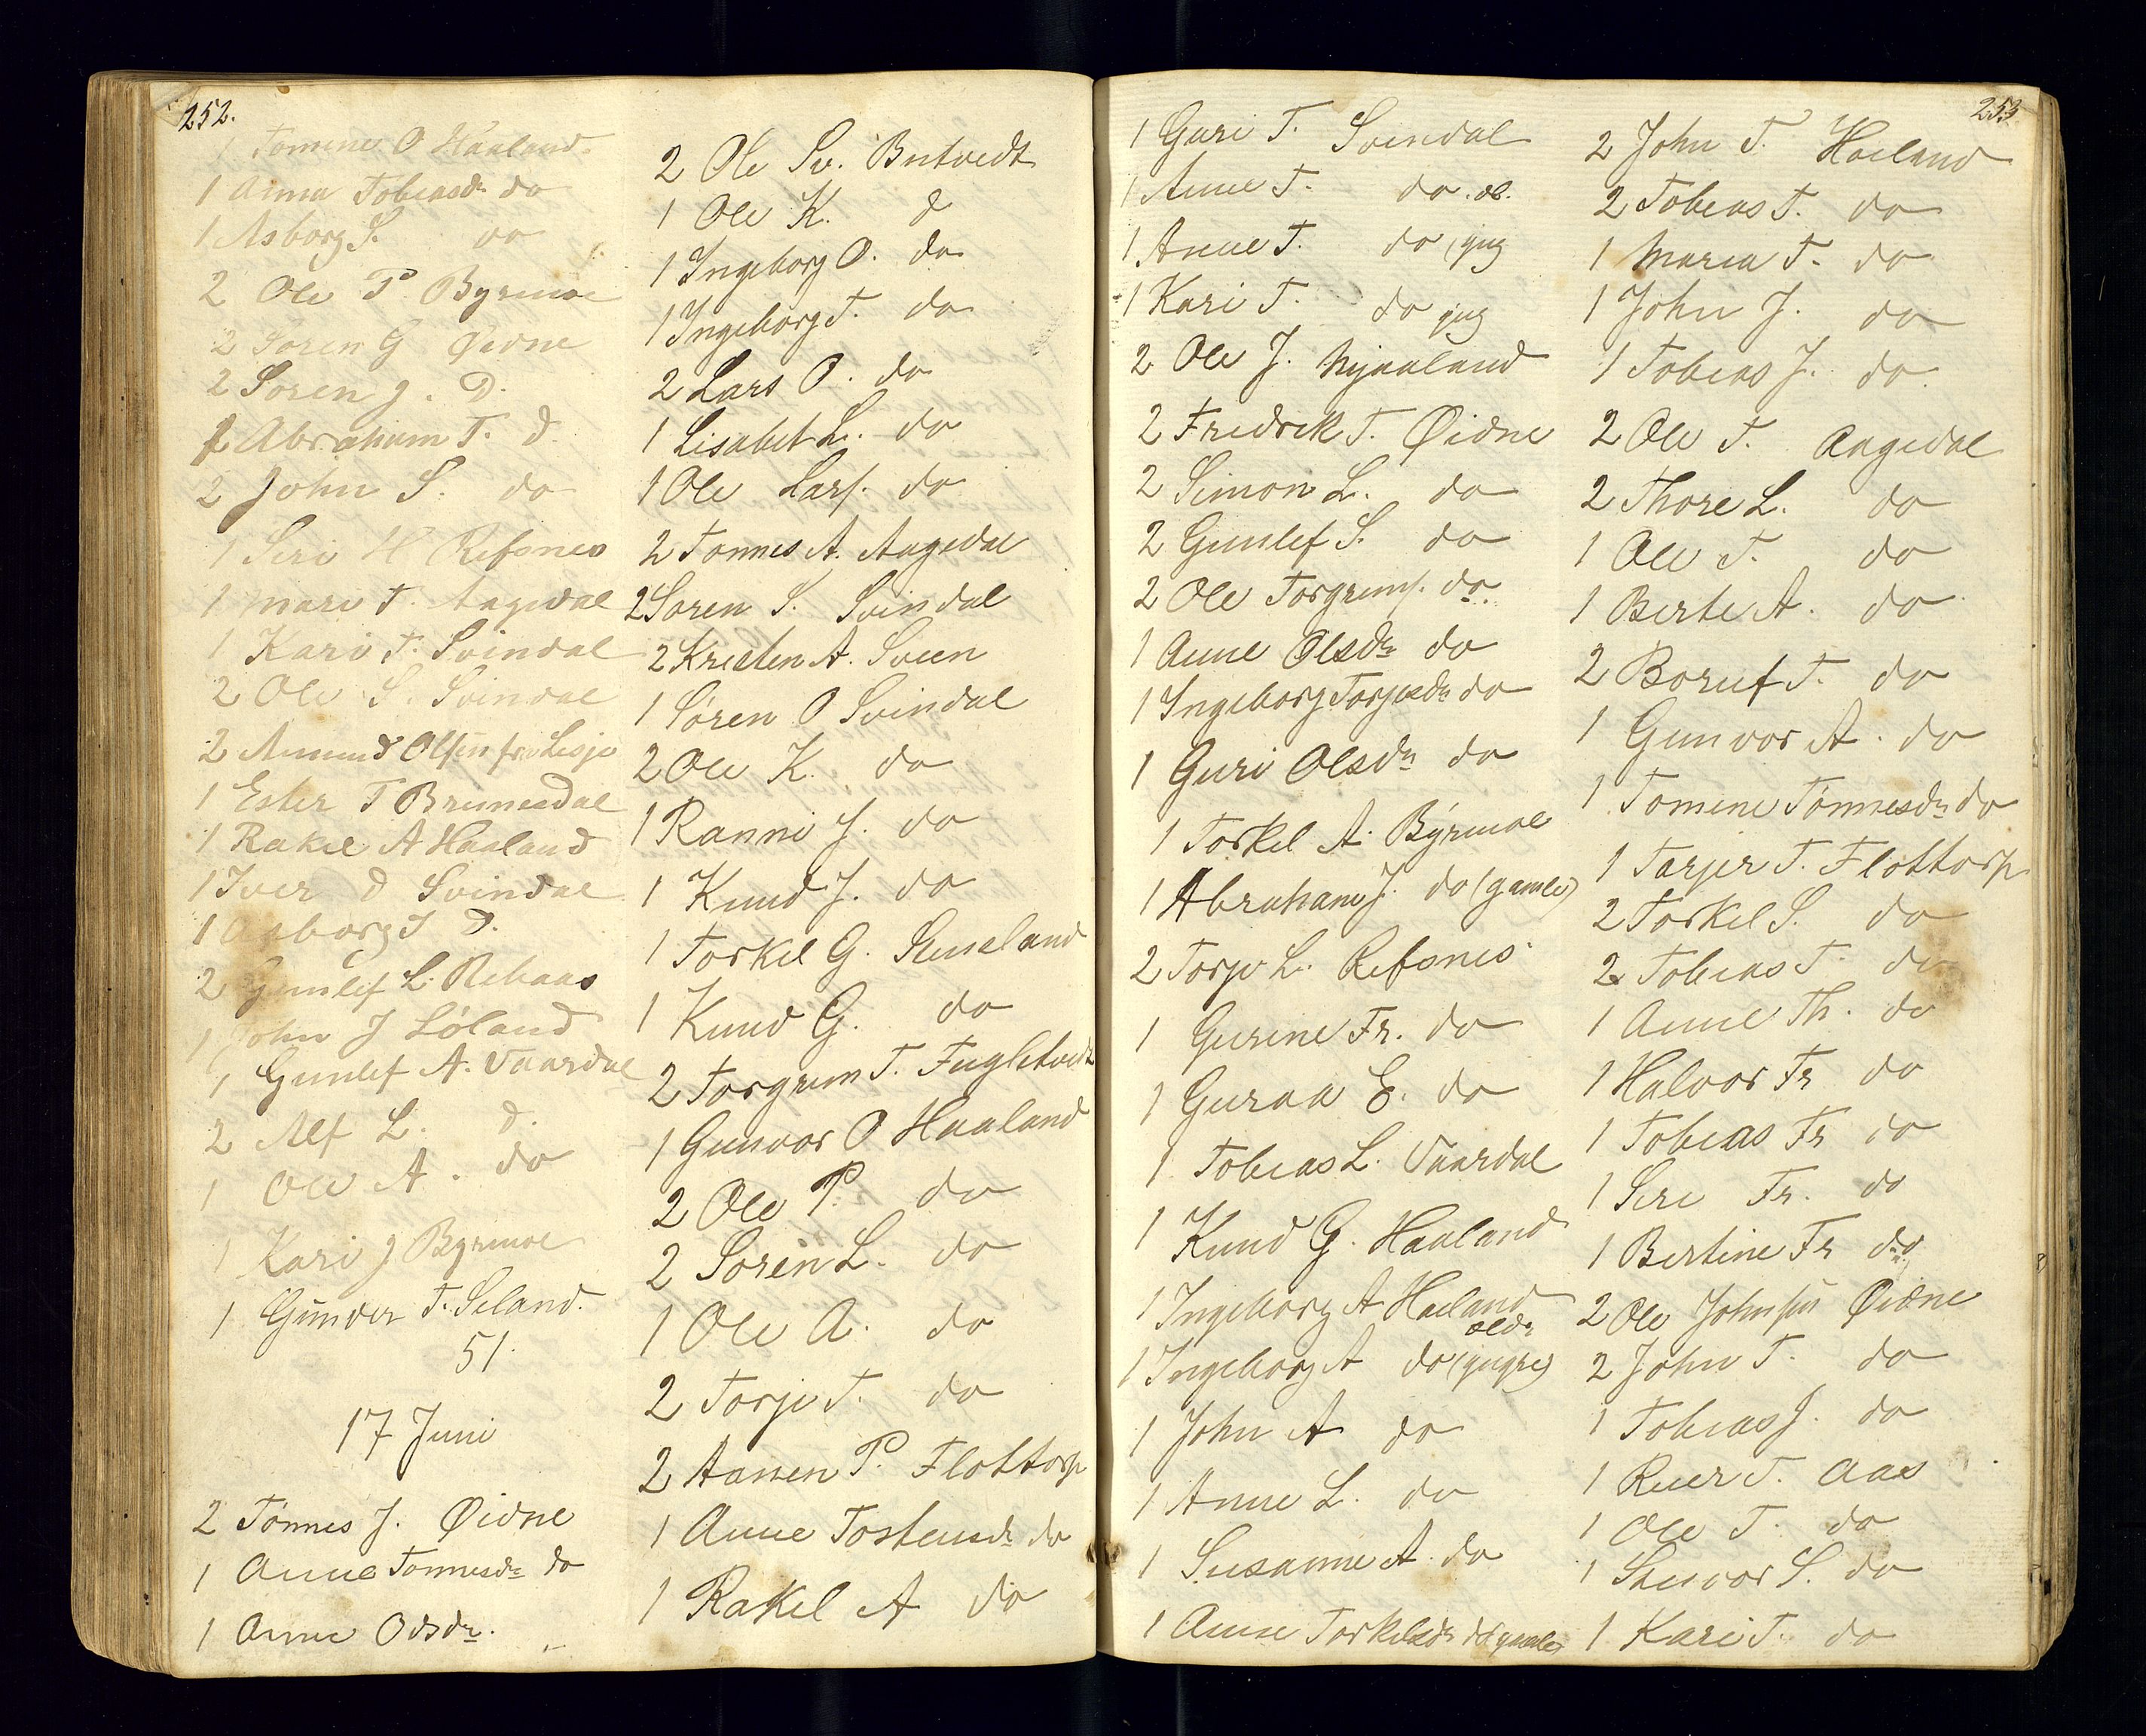 252.
1 Tomine O Haaland
1 Anna Tobiasdr do
1 Asborg S. do
2 Ole P. Byrmoe
2 Soren G Øidne
2 Soren J. D.
2 Abraham T. d
2 John S. do
1 Siri H Refsnes
1 Mari T. Aagedal
1 Kari T. Svindal
2 Ole S. Svindal
2 Aamund Olsen fr. Lisje
1 Ester T Brunesdal
1 Rakel A Haaland
1 Iver d Svindal
1 Asborg J D.
2 Gunlef L. Rebaas
1 John J Løland
1 Gunlef A. Vaardal
2 Alf L. d.
1 Ole A. do
1 Kari J Byrmoe
1 Gunder T. Seland.
51.
17 Juni
2 Tønnes J. Øidne
1 Anne Tonnesdr do
1 Anne Odsdr. "
2 Ole Sv. Bntvedt
1 Ole K. d
1 Ingeborg O. do
1 Ingeborg T. do
2 Lars O. do
1 Lisabet L. do
1 Ole Lars. do
2 Tonnes A. Aagedal
2 Soren S. Svindal
2 Kristen A. Sveen
1 Søren O Svindal
2 Ole K. do
1 Ranni J. do
1 Knud J. do
1 Torkel G.
1 Knud G. do
2 Torgrim T. Fugletvedt
1 Gunvor O Haaland
2 Ole P. do
2 Soren L. do
1 Ole A. do
2 Torje T. do
2 Aanen P. Flottorp
1 Anne Tostensdr do
1 Rakel A do
253
1 Guri T. Svindal
1 Anne T. do. æl.
1 Anne T. do (yng
1 Kari T. do yng
2 Ole J. Mjaaland
2 Fredrik T. Øidne
2 Simon L. do
2 Gunlef S. do
2 Ole Torgrims. do.
1 Anne Olsdr do
1 Ingeborg Torjusdr do
1 Guri Olsdr do
1 Torkel A. Byrmoe
1 Abraham J. do (gamle)
2 Torje L. Refsnes
1 Gurine Fr. do
1 Guraa E. do
1 Tobias L. Vaardal
1 Knud G. Haaland
1 Ingeborg A Haaland
ældr
1 Ingeborg A do (yngre)
1 John A do
1 Anne L. do
1 Susanne A. do
1 Anne Torkelsdr do gamle
2 John T. Haaland
2 Tobias T. do
1 Maria T. do
1 John J. do
1 Tobias J. do
2 Ole T. Aagedal
2 Thore L. do
1 Ole T. do
1 Berte A. do
2 Boruf T. do
1 Gunvor A. do
1 Tomine Tønnesdr do
1 Tarjer T. Flottorp
2 Torkel S. do
2 Tobias T. do
1 Anne Th. do
1 Halvor Fr do
1 Tobias Fr do
1 Siri Fr. do
1 Bertine Fr do
2 Ole Johnsen Øidne
2 John T. do
1 Tobias J. do
1 Reier T. Aas
1 Ole T. do
1 S. do
1 Kari T. do